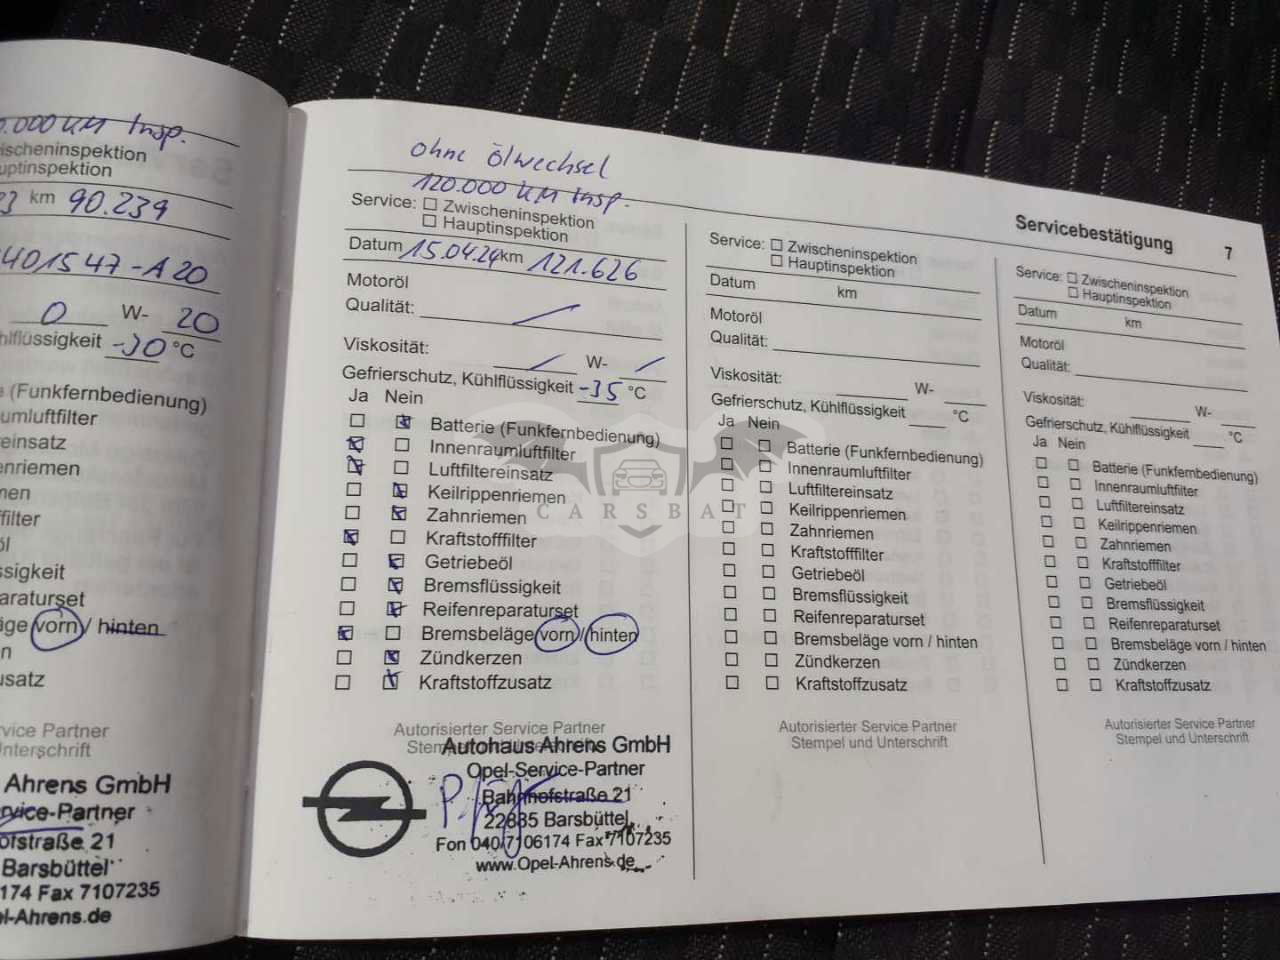 0.000 KM Insp.
ischeninspektion
uptinspektion
23 km 90.239
401547-A20
0 W- 20
hlflüssigkeit -30 °C
e (Funkfernbedienung)
umluftfilter
reinsatz
enriemen
men
filter
öl
ssigkeit
araturset
äge vorn / hinten
n
usatz
rvice Partner
Unterschrift
Ahrens GmbH
rvice-Partner
ofstraße 21
Barsbüttel
174 Fax 7107235
el-Ahrens.de
ohne Ölwechsel
120.000 KM Insp.
Service: Zwischeninspektion
Hauptinspektion
Datum 15.04.24 km 121.626
Motoröl
Qualität:
Viskosität: W-
Gefrierschutz, Kühlflüssigkeit -35 °C
Ja Nein
Batterie (Funkfernbedienung)
Innenraumluftfilter
Luftfiltereinsatz
Keilrippenriemen
Zahnriemen
Kraftstofffilter
Getriebeöl
Bremsflüssigkeit
Reifenreparaturset
Bremsbeläge vorn / hinten
Zündkerzen
Kraftstoffzusatz
Autorisierter Service Partner
Stempel und Unterschrift
Autohaus Ahrens GmbH
Opel-Service-Partner
Bahnhofstraße 21
22885 Barsbüttel
Fon 040/7106174 Fax 7107235
www.Opel-Ahrens.de
CARSBAT
Servicebestätigung 7
Service: Zwischeninspektion
Hauptinspektion
Datum km
Motoröl
Qualität:
Viskosität: W-
Gefrierschutz, Kühlflüssigkeit °C
Ja Nein
Batterie (Funkfernbedienung)
Innenraumluftfilter
Luftfiltereinsatz
Keilrippenriemen
Zahnriemen
Kraftstofffilter
Getriebeöl
Bremsflüssigkeit
Reifenreparaturset
Bremsbeläge vorn / hinten
Zündkerzen
Kraftstoffzusatz
Autorisierter Service Partner
Stempel und Unterschrift
Service: Zwischeninspektion
Hauptinspektion
Datum km
Motoröl
Qualität:
Viskosität: W-
Gefrierschutz, Kühlflüssigkeit °C
Ja Nein
Batterie (Funkfernbedienung)
Innenraumluftfilter
Luftfiltereinsatz
Keilrippenriemen
Zahnriemen
Kraftstofffilter
Getriebeöl
Bremsflüssigkeit
Reifenreparaturset
Bremsbeläge vorn / hinten
Zündkerzen
Kraftstoffzusatz
Autorisierter Service Partner
Stempel und Unterschrift